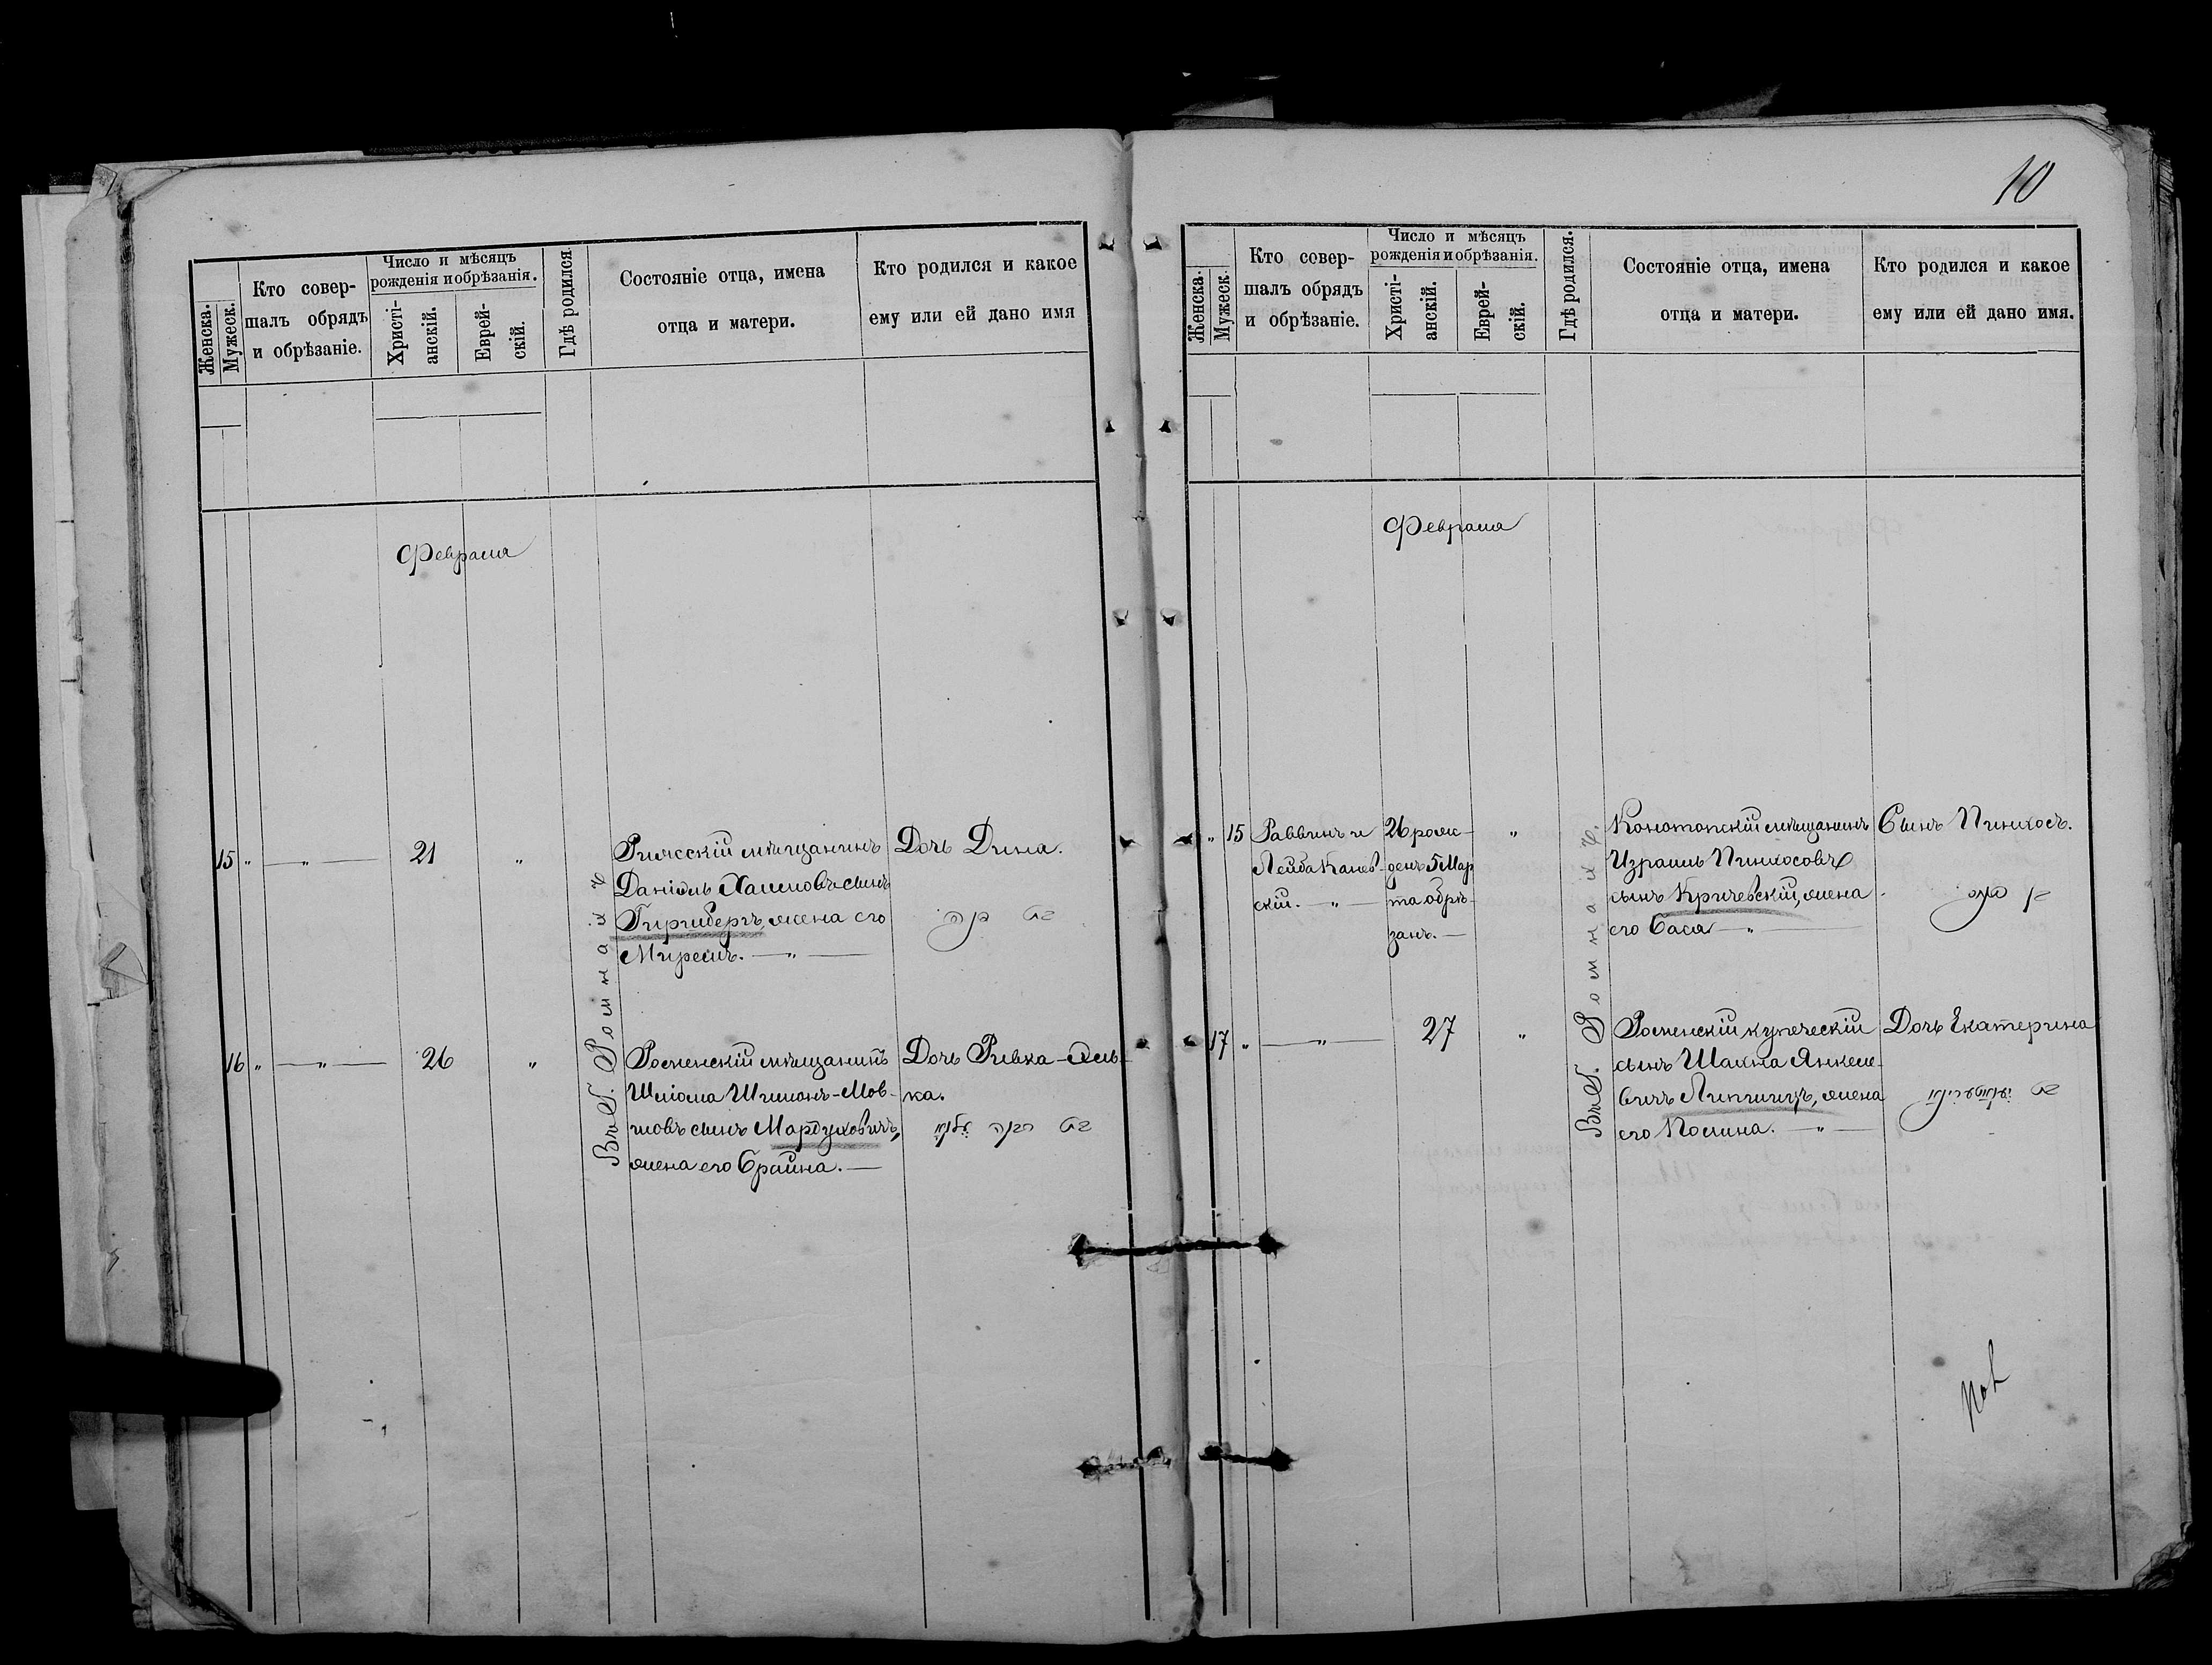 10
Женска.
Мужеск.
Кто совер-
шалъ обрядъ
и обрѣзаніе.
Число и мѣсяцъ
рожденія и обрѣзанія.
Христі-
анскій.
Еврей-
скій.
Гдѣ родился.
Состояніе отца, имена
отца и матери.
Кто родился и какое
ему или ей дано имя
Февраля
15 " — " — 21 "
Въ г. Ромнахъ
Даніэль Хаимовъ сынъ
жена его
Дочь Дина.
16 " — " — 26 "
Роменскій мѣщанинъ
Шліома Шимонъ-Мов-
шовъ сынъ Мардуховичъ,
жена его Брайна. —
Дочь Ривка-
ка.
Женска.
Мужеск.
Кто совер-
шалъ обрядъ
и обрѣзаніе.
Число и мѣсяцъ
рожденія и обрѣзанія.
Христі-
анскій.
Еврей-
скій.
Гдѣ родился.
Состояніе отца, имена
отца и матери.
Кто родился и какое
ему или ей дано имя.
Февраля
" 15
Раввинъ и
Лейба Канев-
скій. — " —
26 рож-
денъ 5 Мар
та обрѣ-
занъ. —
"
Въ г. Ромнахъ.
Конотопскій мѣщанинъ
Израиль Пинхосовъ
сынъ Кричевскій, жена
его Бася — " —
Сынъ Пинхосъ.
17 " — " — 27 "
Роменскій купеческій
сынъ Шахна Янкеле-
вичъ Липшицъ, жена
его — " —
Дочь Екатерина
בת